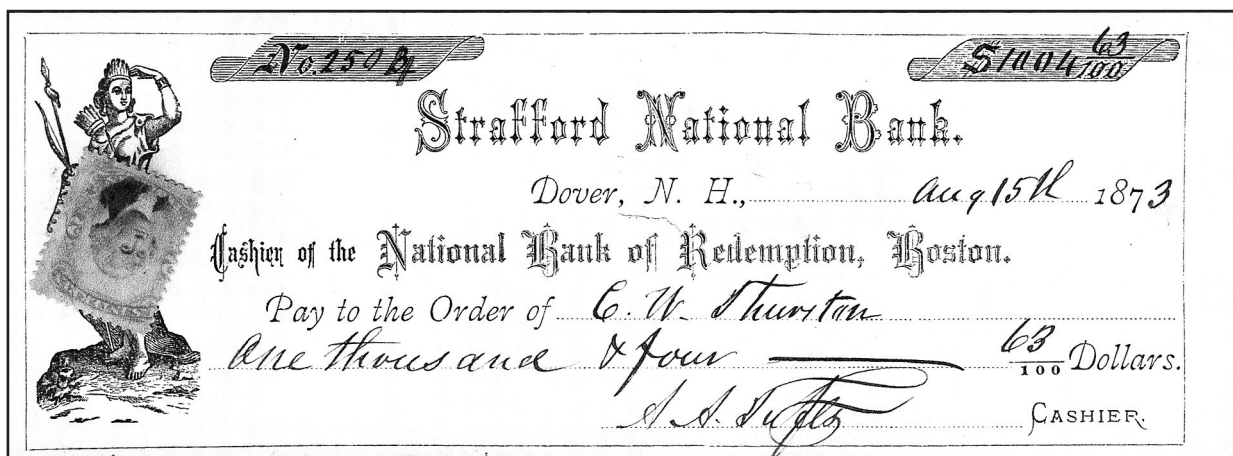 No. 2504 $1004 63/100
Strafford National Bank.
Dover, N. H., Aug 15th 1873
Cashier of the National Bank of Redemption, Boston.
Pay to the Order of C. W. Thurston
One thousand & four 63/100 Dollars.
A. A. Tufts CASHIER.